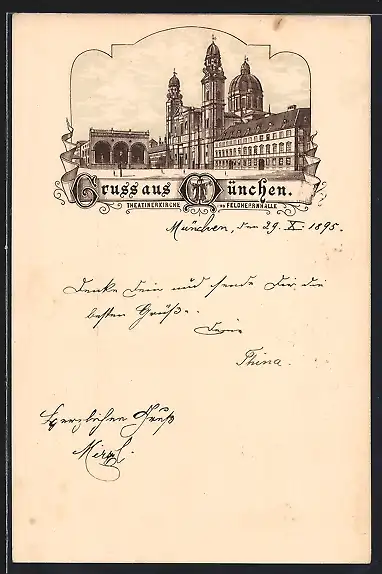 Gruss aus München.
THEATINERKIRCHE und FELDHERRNHALLE
München, den 29. X. 1895.
Denke Dein und sende Dir die
besten Grüße.
Deine
Thina.
Herzlichen Gruß